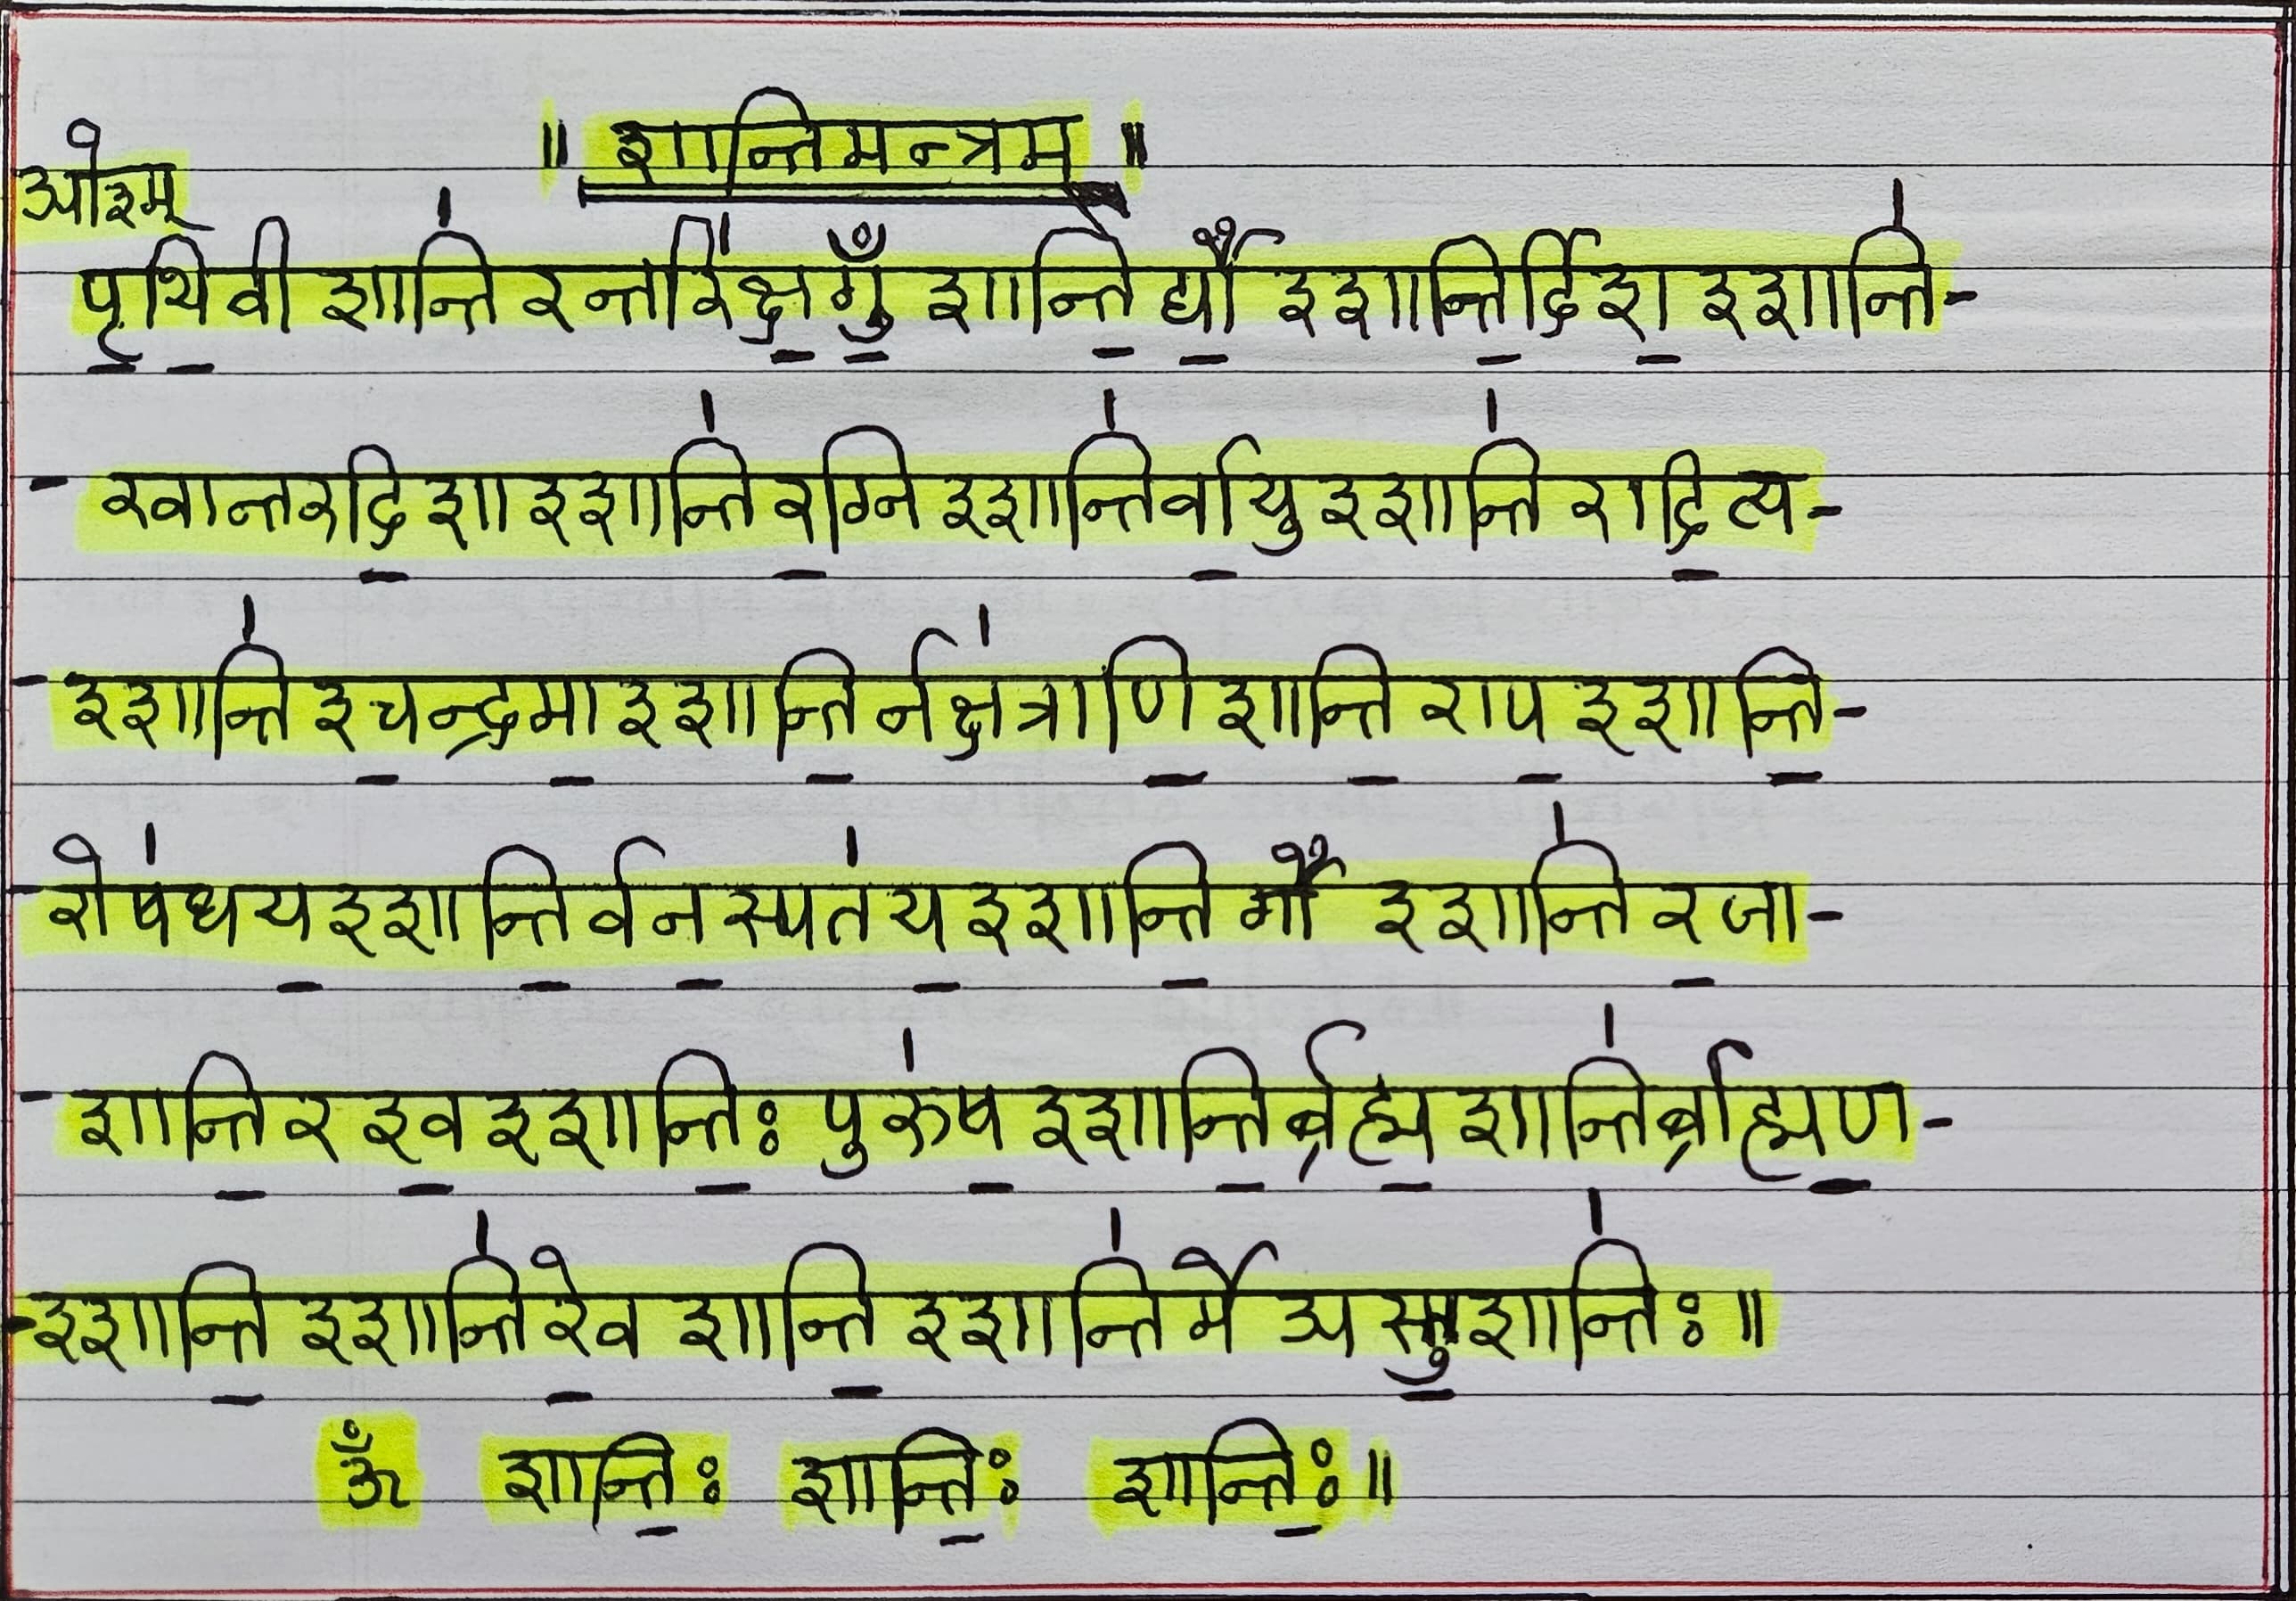 ॥ शान्तिमन्त्रम् ॥
ओ३म्
पृ॒थि॒वी शान्ति॑ रन्तरि॑क्ष॒गुँ॒ शान्ति॒ र्द्यौ॒ श्शान्ति॒र्दिश॒ श्शान्ति॑-
- रवान्तरदि॒शा श्शान्ति॑ र॒ग्नि श्शान्ति॑र्वा॒यु श्शान्ति॑ रादि॒त्य-
- श्शान्ति॑ श्च॒न्द्रमा॒ श्शान्ति॒ र्नक्ष॑त्राणि॒ शान्ति॒ राप॒ श्शान्ति॒-
- रोष॑धय॒ श्शान्ति॒र्वन॒स्पत॑य॒ श्शान्ति॒ र्गौ श्शान्ति॑ रजा॒-
- शान्ति॒ र श्व॒ श्शान्ति॒ः पुरु॑ष॒ श्शान्ति॒र्ब्रह्म॒ शान्ति॑र्ब्राह्मण॒-
- श्शान्ति॒ श्शान्ति॑ रे॒व शान्ति॒ श्शान्ति॑ र्मे अस्तु॒ शान्ति॑ः ॥
ॐ शान्ति॒ः शान्ति॒ः शान्ति॒ः ॥